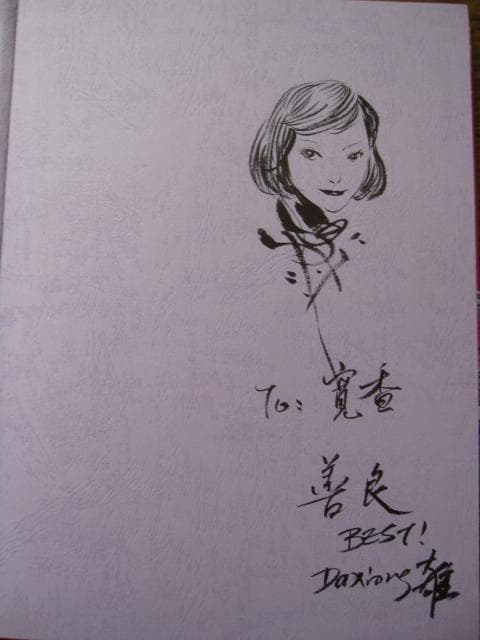 To: 寬香
善良
BEST!
Daxiong 雄